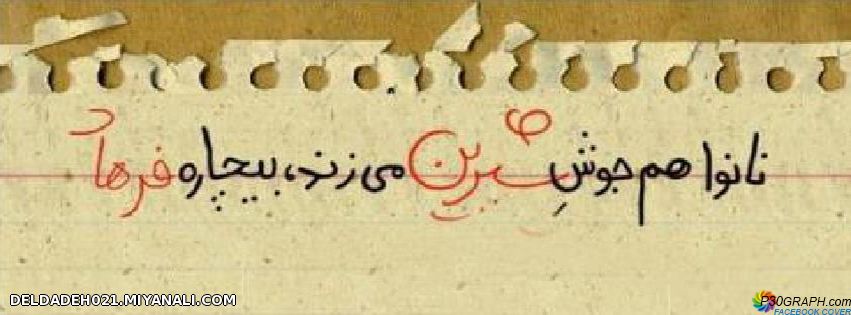 نانوا هم جوشِ شیرین می زند، بیچاره فرهاد
DELDADEH021.MIYANALI.COM
P30GRAPH.com
FACEBOOK COVER